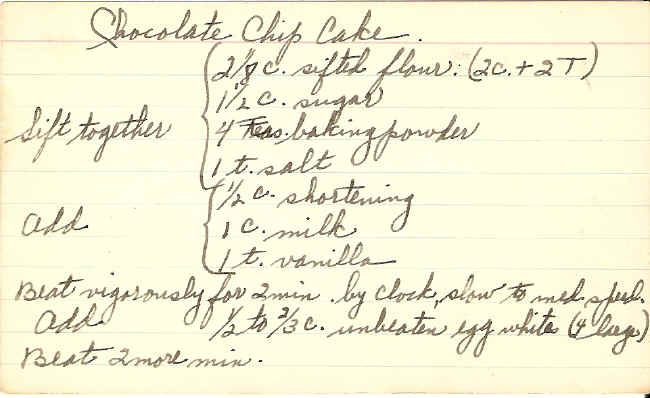 Chocolate Chip Cake.
2 1/8 c. sifted flour: (2c. + 2 T)
1 1/2 c. sugar
Sift together 4 Teas. baking powder
1 t. salt
1/2 c. shortening
Add 1 c. milk
1 t. vanilla
Beat vigorously for 2 min. by clock, slow to med. speed.
Add 1/2 to 2/3 c. unbeaten egg white (4 large)
Beat 2 more min.